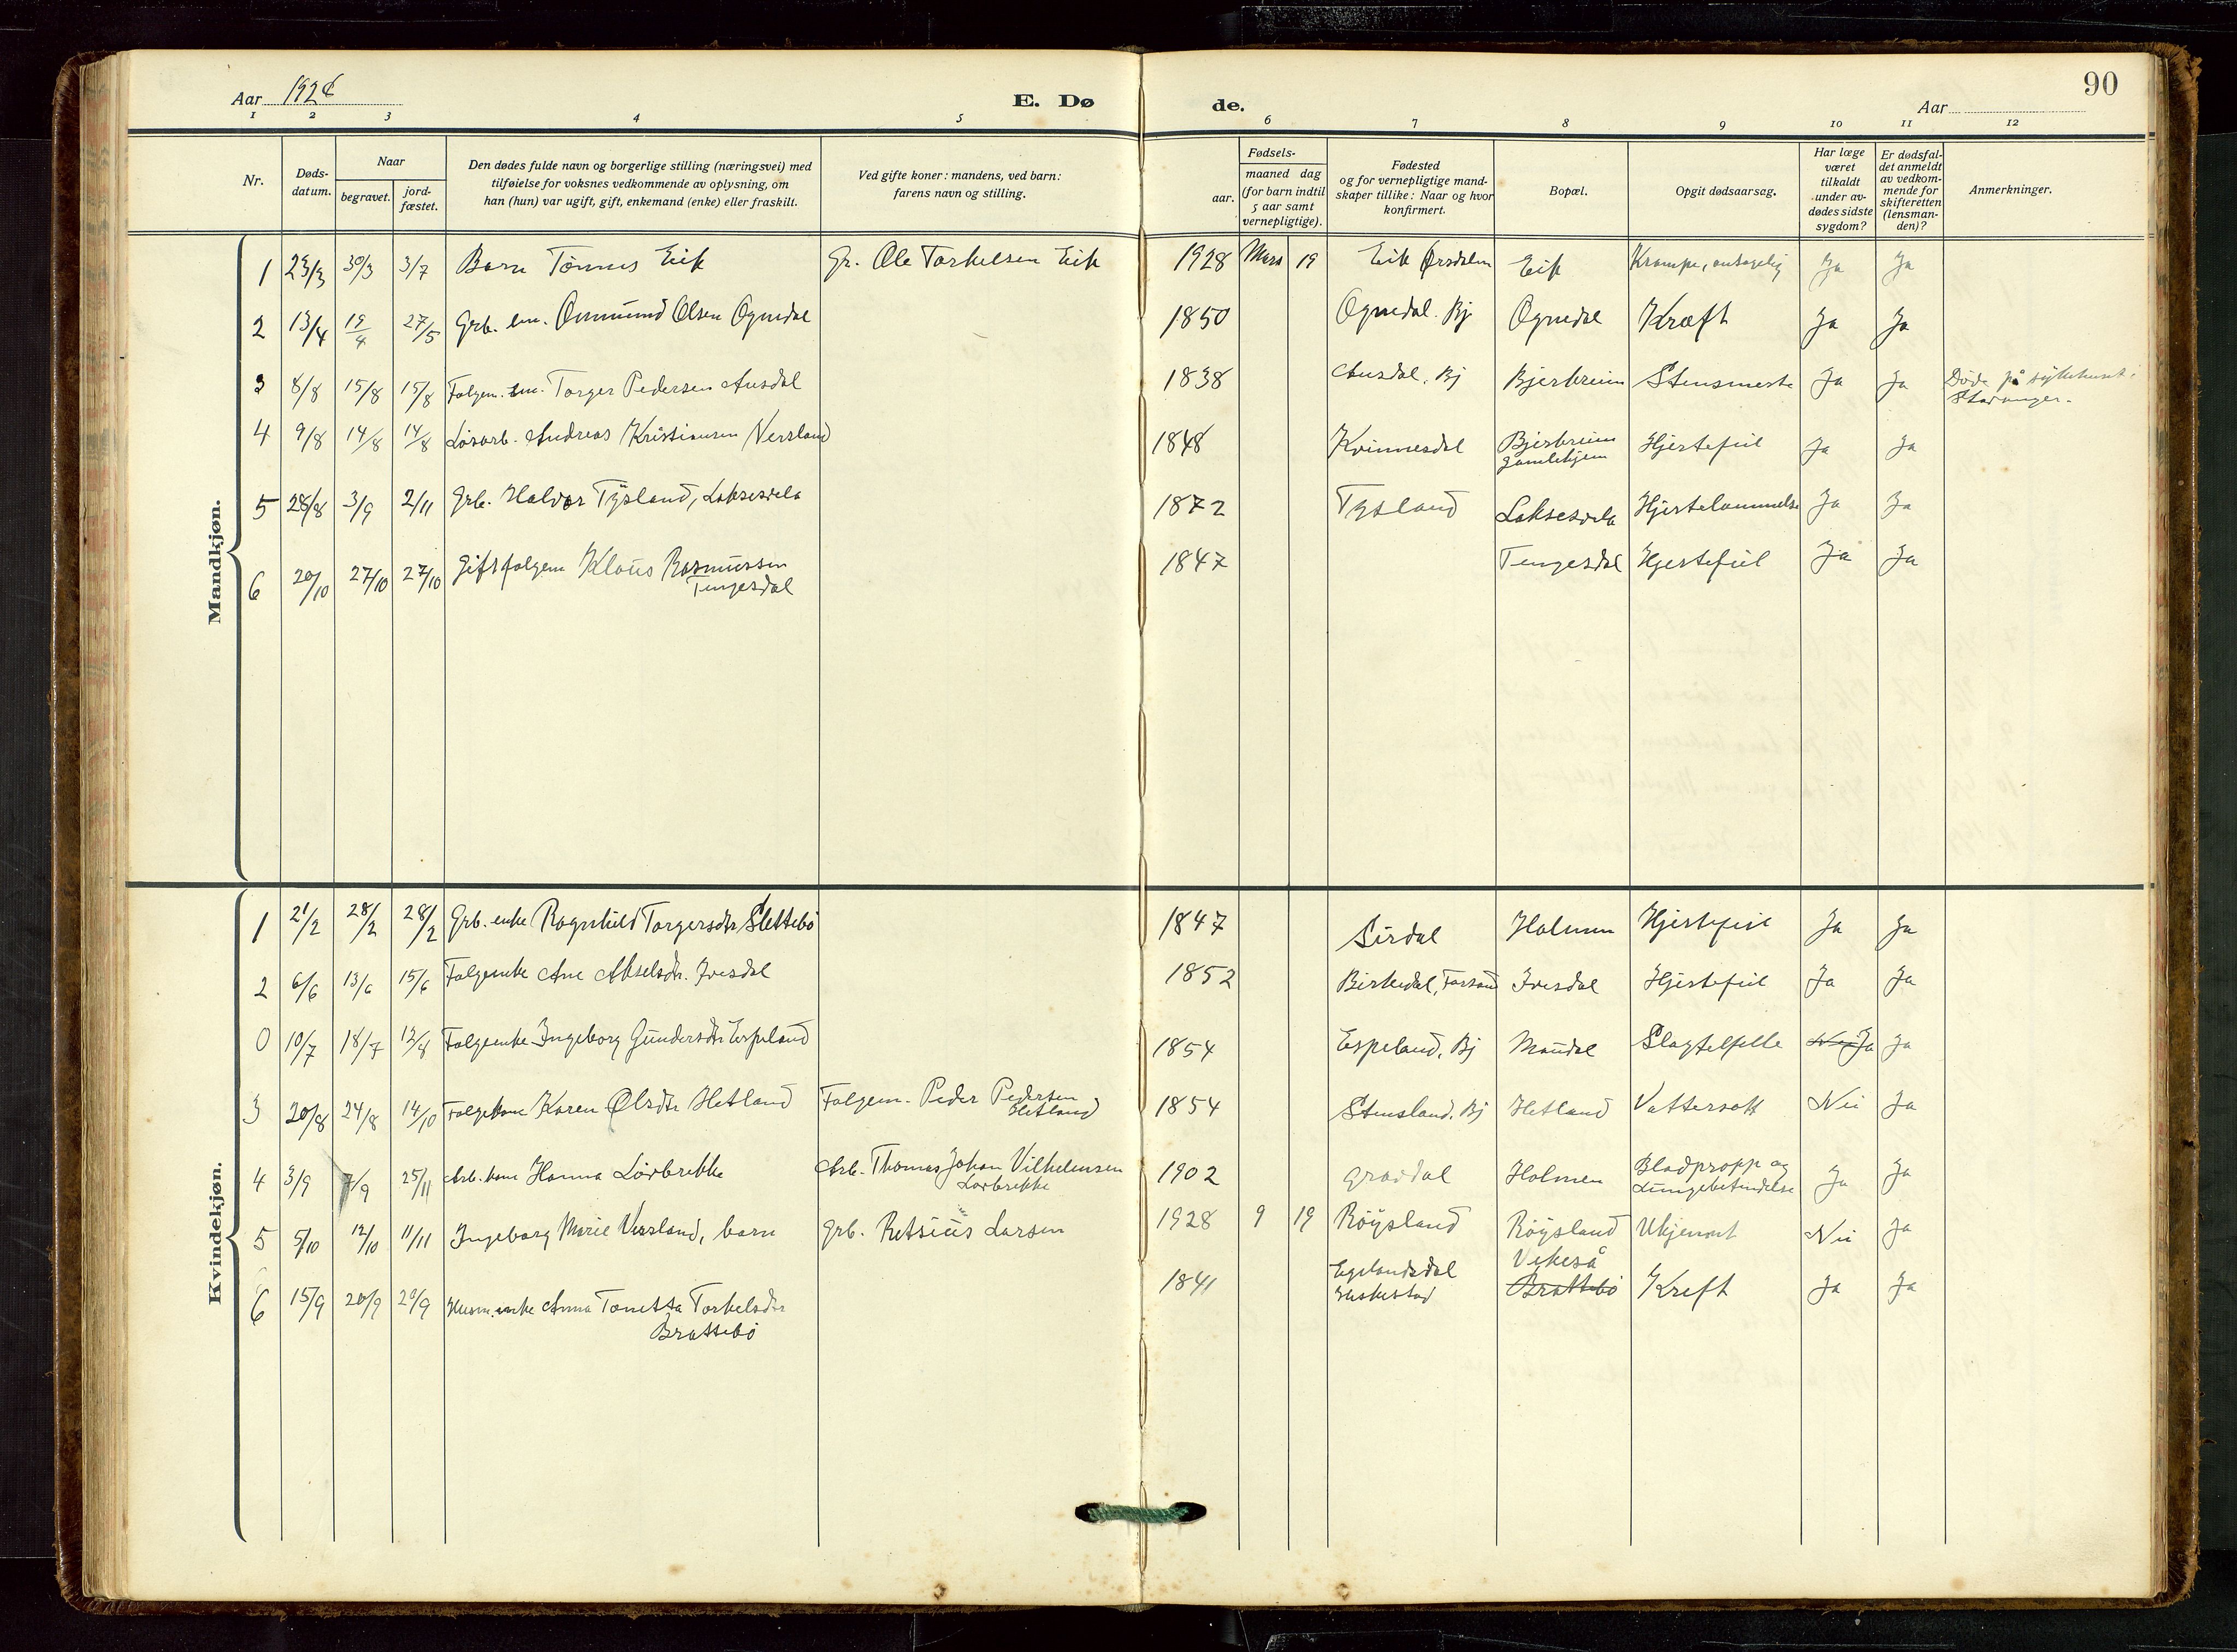 90
Aar 1928
E. Dø
de.
Aar
1 2 3 4 5 6 7 8 9 10 11 12
Nr.
Døds-
datum.
Naar
begravet.
jord-
fæstet.
Den dødes fulde navn og borgerlige stilling (næringsvei) med
tilføielse for voksnes vedkommende av oplysning, om
han (hun) var ugift, gift, enkemand (enke) eller fraskilt.
Ved gifte koner: mandens, ved barn:
farens navn og stilling.
Fødsels-
aar.
maaned dag
(for barn indtil
5 aar samt
vernepligtige).
Fødested
og for vernepligtige mand-
skaper tillike: Naar og hvor
konfirmert.
Bopæl.
Opgit dødsaarsag.
Har læge
været
tilkaldt
under av-
dødes sidste
sygdom?
Er dødsfal-
det anmeldt
av vedkom-
mende for
skifteretten
(lensman-
den)?
Anmerkninger.
Mandkjøn.
1 23/3 30/3 3/7 Barn Tönnes Eik Gr. Ole Torkelsen Eik 1928 Mars 19 Eik Ørsdalen Eik Krampe, Ja Ja
2 13/4 19/4 27/5 Grb. em. Ommund Olsen Ognedal 1850 Ognedal. Bj Ognedal Kræft Ja Ja
3 8/8 15/8 15/8 Folgem. em. Torger Pedersen Ausdal 1838 Ausdal, Bj Bjerkreim Stensmerte Ja Ja Döde på sykehuset i
Stavanger.
4 9/8 14/8 14/8 Lösarb. Andreas Kristiansen Versland 1848 Kvinnesdal Bjerkreim
gamlehjem Hjertefeil Ja Ja
5 28/8 3/9 2/11 Grb. Halvor Tysland, Laksesvela 1872 Tysland Laksesvela Hjertelammelse Ja Ja
6 20/10 27/10 27/10 Gift folgem Klaus Rasmussen
Tengesdal 1847 Tengesdal Hjertefeil Ja Ja
Kvindekjøn.
1 21/2 28/2 28/2 Grb. enke Ragnhild Torgersdtr Slettebö 1847 Sirdal Holmen Hjertefeil Ja Ja
2 6/6 13/6 15/6 Folgeenke Ane Akselsdtr. Ivesdal 1852 Birkedal, Forsand Ivesdal Hjertefeil Ja Ja
0 10/7 18/7 12/8 Folgeenke Ingeborg Gundersdtr Espeland 1854 Espeland, Bj Maudal Slagtilfelle Nei Ja Ja
3 20/8 24/8 14/10 Folgekone Karen Olsdtr Hetland Folgem. Peder Pedersen
Hetland 1854 Stensland. Bj Hetland Vattersott Nei Ja
4 3/9 7/9 25/11 Arb. kone Hanna Lövbrekke Arb. Thomas Johan Vilhelmsen
Lövbrekke 1902 Gravdal Holmen Blodpropp og
Lungebetendelse Ja Ja
5 5/10 12/10 11/11 Ingeborg Marie Versland, barn Grb. Retsius Larsen 1928 9 19 Röysland Röysland Ukjennt Nei Ja
6 15/9 20/9 20/9 Husm. enke Anna Tonetta Torkelsdtr
Brattebö 1841 Egelandsdal
Heskestad Vikeså
Brattebö Kreft Ja Ja